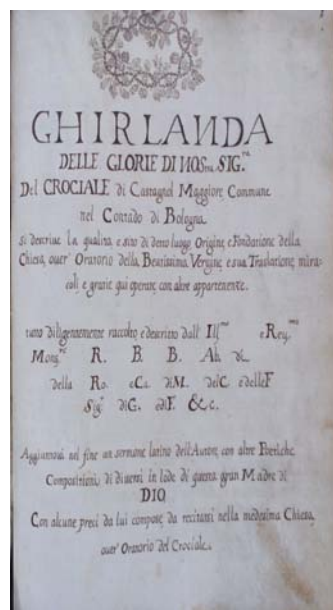 GHIRLANDA
DELLE GLORIE DI NOS.ra SIG.ra
Del CROCIALE di Castagnol Maggiore Commune
nel Contado di Bologna
si descriue la qualita, e sito di detto luogo, Origine, e Fondatione della
Chiesa, ouer' Oratorio della Beatissima Vergine, e sua Traslatione, mira-
coli e gratie qui operate con altre appartenente.
tutto diligentemente raccolto, e descritto dall' Ill.mo e Reu.mo
Mons.re R. B. B. Ab. di
della Ro. e Ca. di M. del C. e delle F
Sig.re di G. e di F. &c.
Aggiuntoui nel fine un sermone latino dell' Autore con altre Poetiche
Compositioni, di diuersi in lode di questa gran Madre di
DIO
Con alcune preci da lui composte da recitarsi nella medesima Chiesa,
ouer' Oratorio del Crociale.